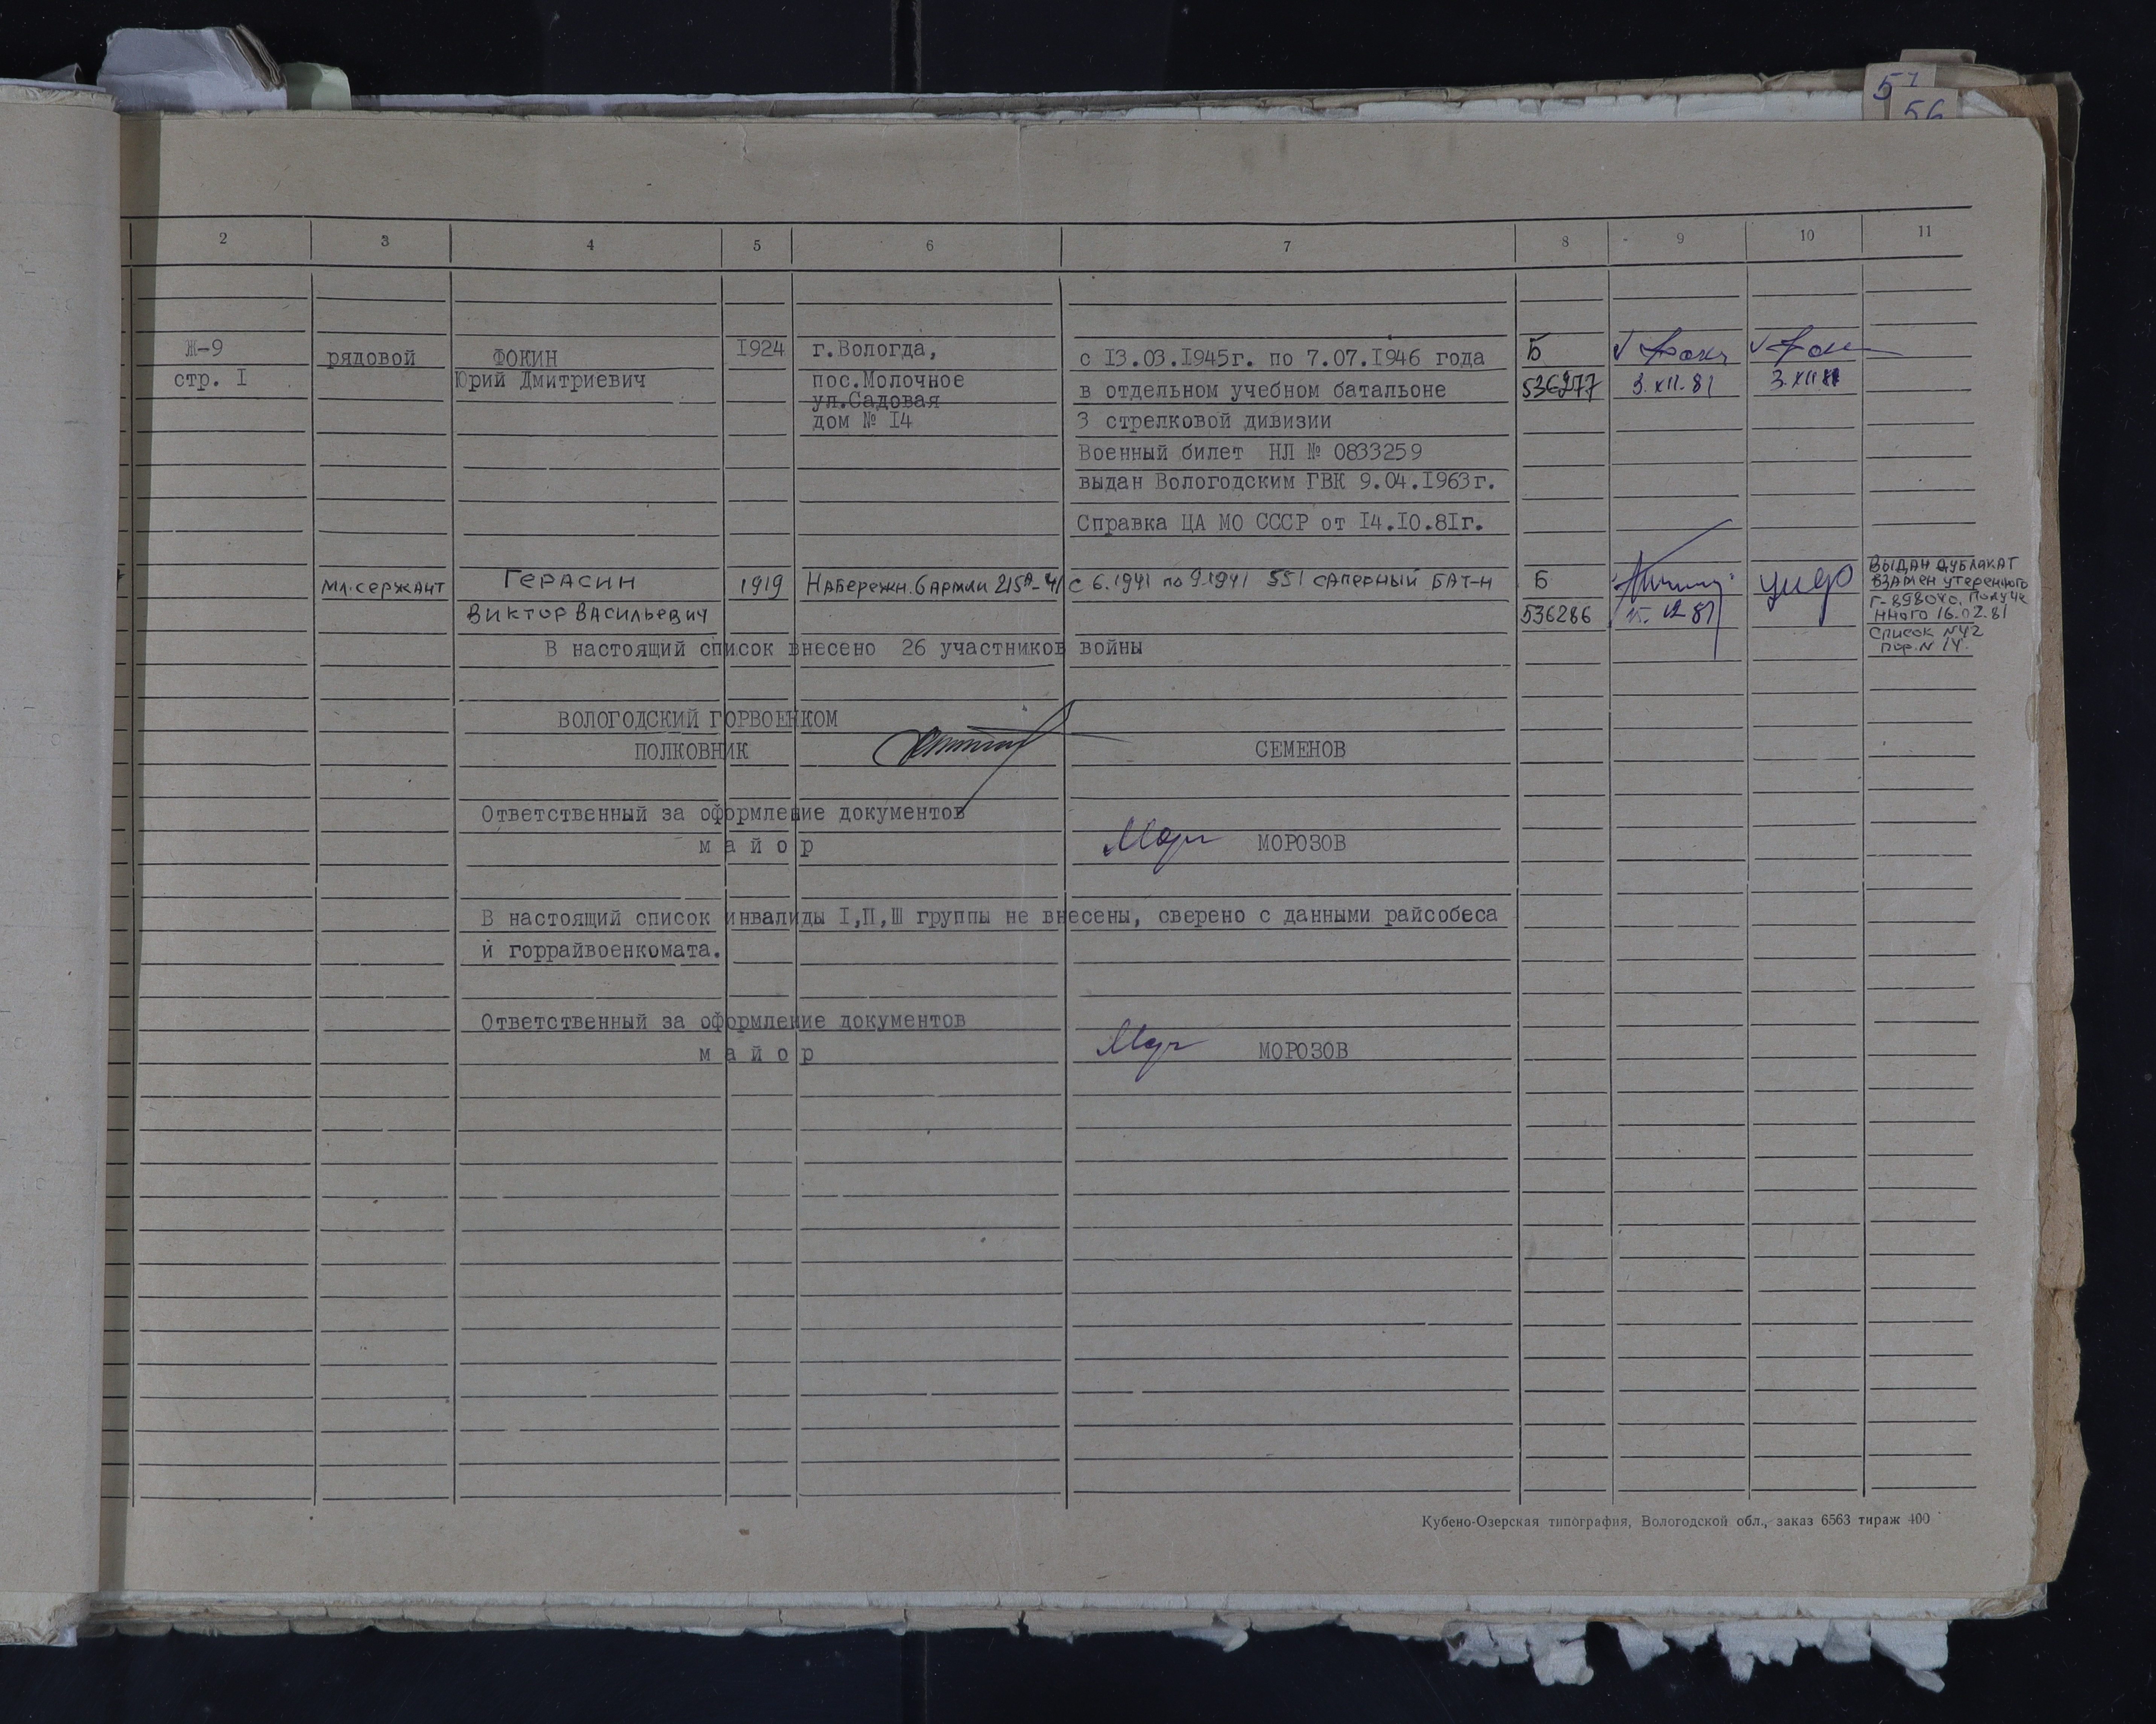 57
56
2 3 4 5 6 7 8 9 10 11
Ж-9 рядовой ФОКИН 1924 г.Вологда, с 13.03.1945г. по 7.07.1946 года Б
стр. I Юрий Дмитриевич пос.Молочное в отдельном учебном батальоне 536277 3.XII.81 3.XII.81
ул.Садовая
дом № 14 3 стрелковой дивизии
Военный билет НЛ № 0833259
выдан Вологодским ГВК 9.04.1963г.
Справка ЦА МО СССР от 14.10.81г.
мл.сержант Герасин 1919 Набережн. 6 армии 215А-41 с 6.1941 по 9.1941 551 саперный бат-н Б
Виктор Васильевич 536286 15.12.81
Выдан дубликат
взамен утеренного
Г-898040, получе
нного 16.02.81
Список №42
пор.№ 14.
В настоящий список внесено 26 участников войны
ВОЛОГОДСКИЙ ГОРВОЕНКОМ
ПОЛКОВНИК СЕМЕНОВ
Ответственный за оформление документов
майор МОРОЗОВ
В настоящий список инвалиды I,П,Ш группы не внесены, сверено с данными райсобеса
и горрайвоенкомата.
Ответственный за оформление документов
майор МОРОЗОВ
Кубено-Озерская типография, Вологодской обл., заказ 6563 тираж 400